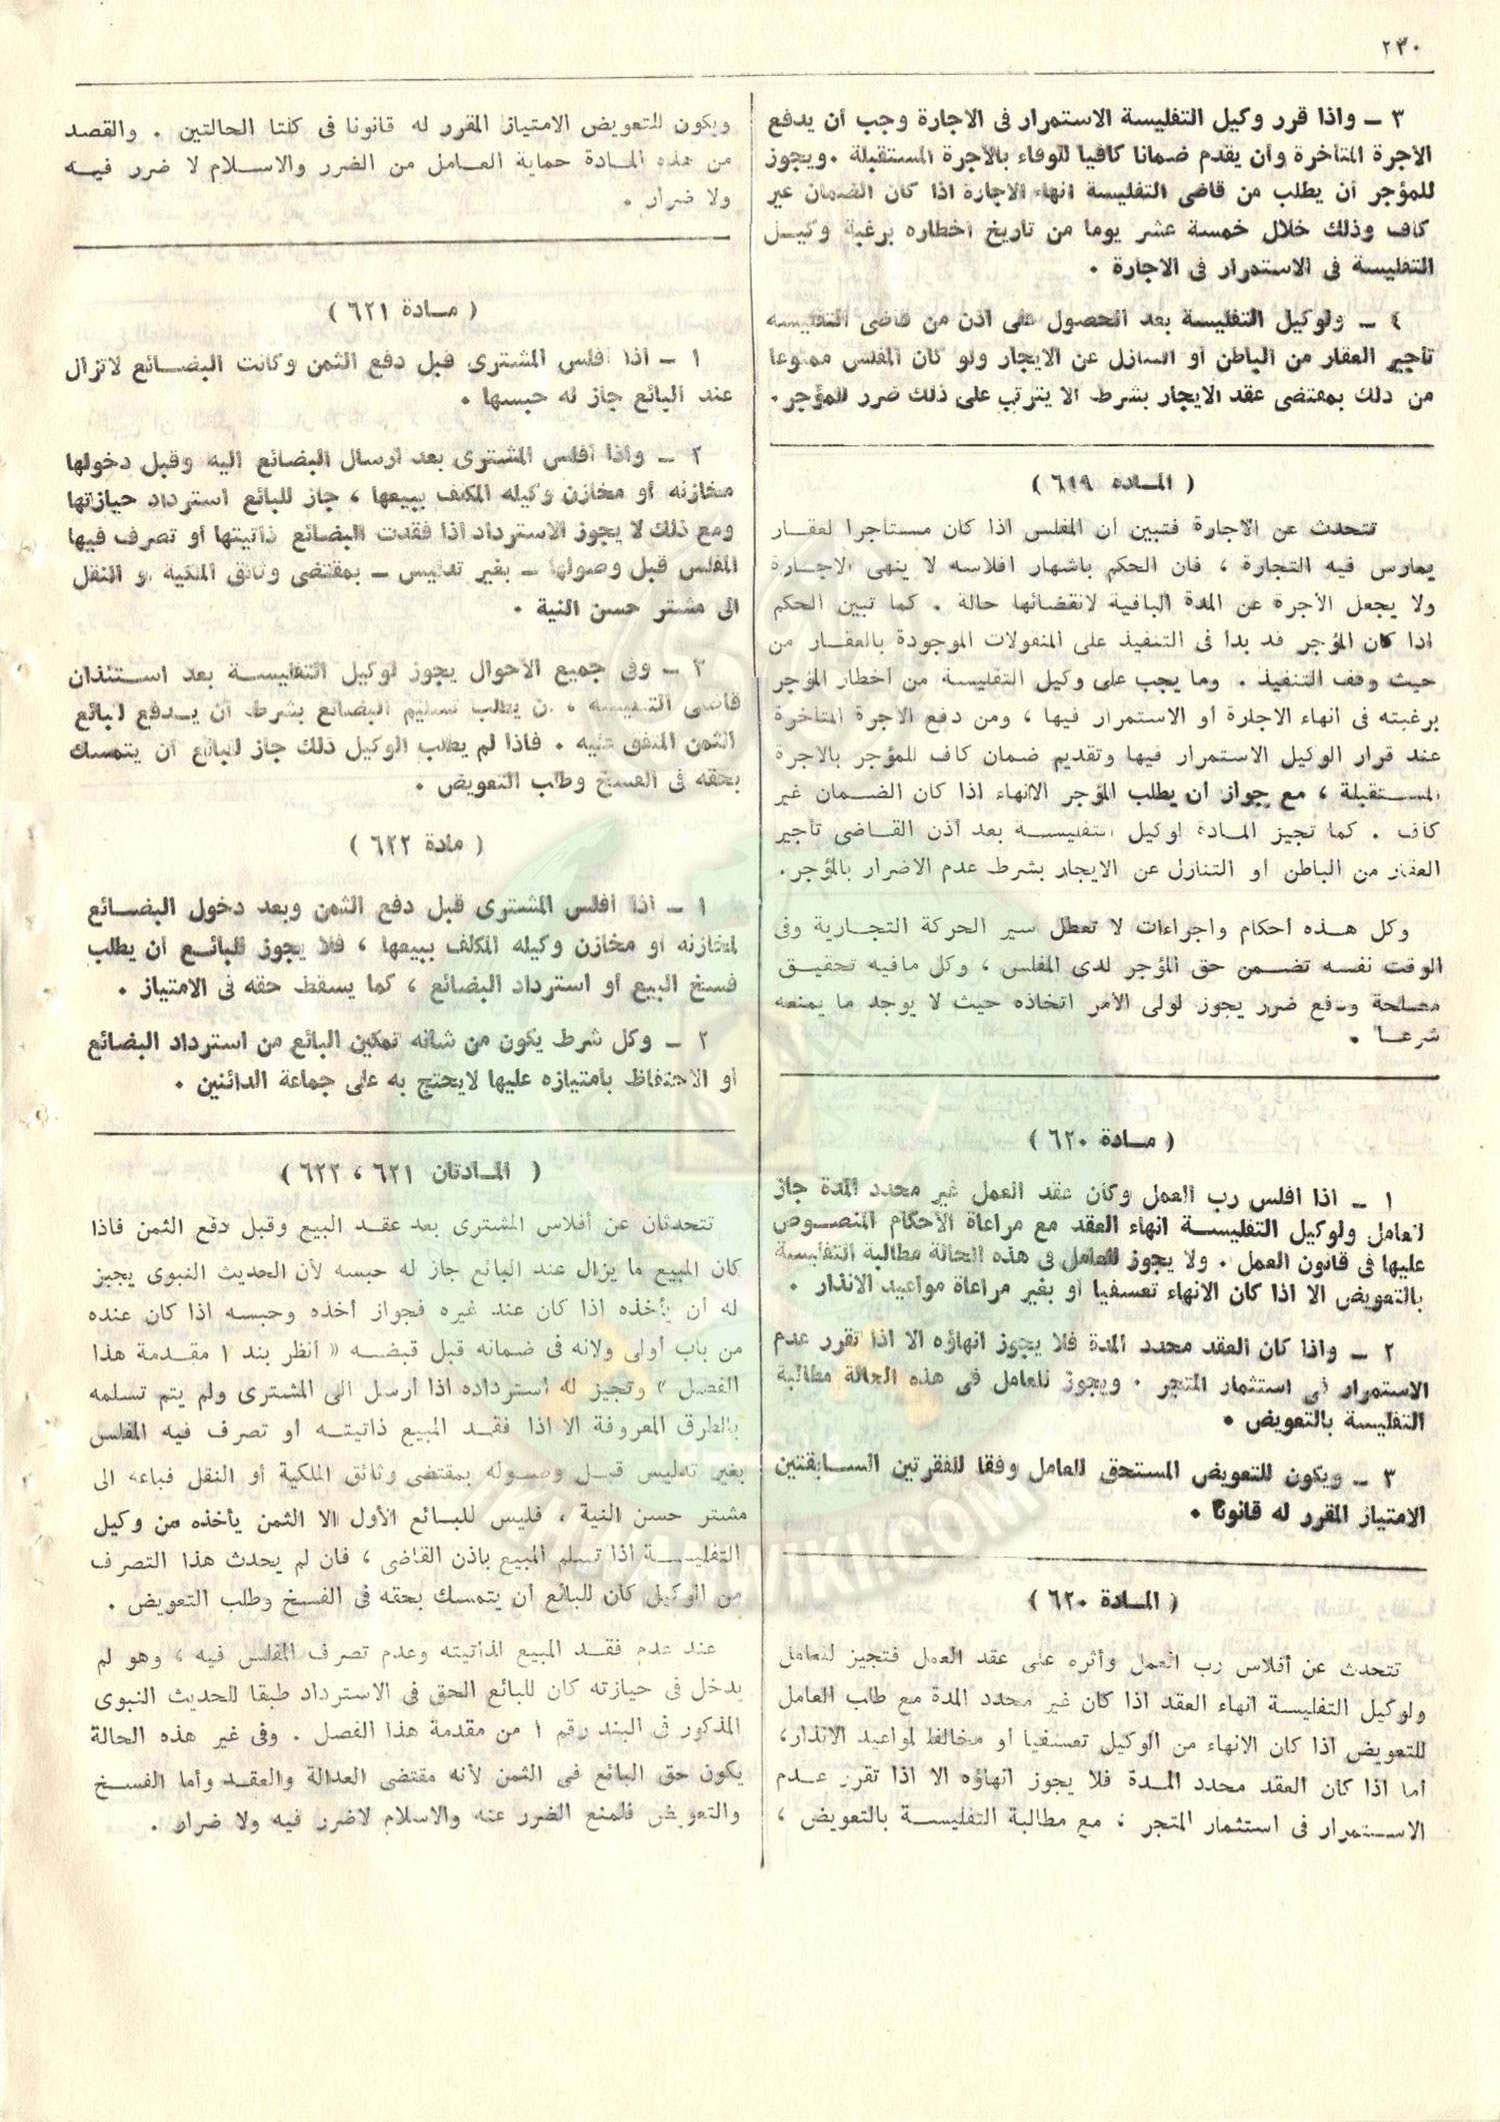 ٢٣٠
٣ – واذا قرر وكيل التفليسة الاستمرار فى الاجارة وجب أن يدفع
الأجرة المتأخرة وأن يقدم ضمانا كافيا للوفاء بالأجرة المستقبلة . ويجوز
للمؤجر أن يطلب من قاضى التفليسة انهاء الاجارة اذا كان الضمان غير
كاف وذلك خلال خمسة عشر يوما من تاريخ اخطاره برغبة وكيـل
التفليسة فى الاستمرار فى الاجارة .
٤ – ولوكيل التفليسة بعد الحصول على اذن من قاضى التفليسة
تأجير العقار من الباطن أو التنازل عن الايجار ولو كان المفلس ممنوعا
من ذلك بمقتضى عقد الايجار بشرط ألا يترتب على ذلك ضرر للمؤجر.
( المـاده ٦١٩ )
تتحدث عن الاجارة فتبين أن المفلس اذا كان مستأجرا لعقـار
يمارس فيه التجارة ، فان الحكم باشهار افلاسه لا ينهى الاجـارة
ولا يجعل الأجرة عن المدة الباقية لانقضائها حالة . كما تبين الحكم
اذا كان المؤجر قد بدأ فى التنفيذ على المنقولات الموجودة بالعقـار من
حيث وقف التنفيذ . وما يجب على وكيل التفليسة من اخطار المؤجر
برغبته فى انهاء الاجارة أو الاستمرار فيها ، ومن دفع الأجرة المتأخرة
عند قرار الوكيل الاستمرار فيها وتقديم ضمان كاف للمؤجر بالأجرة
المسـتقبلة ، مع جواز أن يطلب المؤجر الانهاء اذا كان الضـمان غير
كاف . كما تجيز المـادة لوكيل التفليسـة بعد اذن القـاضى تأجير
العقار من الباطن أو التنازل عن الايجار بشرط عدم الاضرار بالمؤجر.
وكل هـذه أحكام واجراءات لا تعطل سير الحركة التجـارية وفى
الوقت نفسه تضـمن حق المؤجر لدى المفلس ، وكل مافيه تحقيـق
مصلحة ودفع ضرر يجوز لولى الأمر اتخاذه حيث لا يوجد ما يمنعه
شرعـا .
( مـادة ٦٢٠ )
١ – اذا افلس رب العمل وكان عقد العمل غير محدد المدة جاز
للعامل ولوكيل التفليسـة انهاء العقد مع مراعاة الأحكام المنصـوص
عليها فى قانون العمل . ولا يجوز للعامل فى هذه الحالة مطالبة التفليسة
بالتعويض الا اذا كان الانهاء تعسفيا أو بغير مراعاة مواعيد الانذار .
٢ – واذا كان العقد محدد المدة فلا يجوز انهاؤه الا اذا تقرر عدم
الاستمرار فى استثمار المتجر . ويجوز للعامل فى هذه الحالة مطالبة
التفليسة بالتعويض .
٣ – ويكون للتعويض المستحق للعامل وفقا للفقرتين السـابقتين
الامتياز المقرر له قانونا .
( المـادة ٦٢٠ )
تتحدث عن أفلاس رب العمل وأثره على عقد العمل فتجيز للعامل
ولوكيل التفليسة انهاء العقد اذا كان غير محدد المدة مع طلب العامل
للتعويض اذا كان الانهاء من الوكيل تعسفيا أو مخالفا لمواعيد الانذار،
أما اذا كان العقد محدد المـدة فلا يجوز انهاؤه الا اذا تقرر عـدم
الاسـتمرار فى استثمار المتجر ، مع مطالبة التفليسـة بالتعويض ،
ويكون للتعويض الامتياز المقرر له قانونا فى كلتا الحالتين . والقصد
من هذه المـادة حماية العـامل من الضرر والاسـلام لا ضرر فيـه
ولا ضرار .
( مـادة ٦٢١ )
١ – اذا أفلس المشترى قبل دفع الثمن وكانت البضـائع لاتزال
عند البائع جاز له حبسها .
٢ – واذا أفلس المشترى بعد ارسال البضائع اليه وقبل دخولها
مخازنه أو مخازن وكيله المكلف ببيعها ، جاز للبائع استرداد حيازتها
ومع ذلك لا يجوز الاسترداد اذا فقدت البضائع ذاتيتها أو تصرف فيها
المفلس قبل وصولها – بغير تدليس – بمقتضى وثائق الملكية أو النقل
الى مشتر حسن النية .
٣ – وفى جميع الأحوال يجوز لوكيل التفليسـة بعد اسـتئذان
قاضى التفليسة ، أن يطلب تسليم البضائع بشرط أن يـدفع للبائع
الثمن المتفق عليه . فاذا لم يطلب الوكيل ذلك جاز للبائع أن يتمسك
بحقه فى الفسخ وطلب التعويض .
( مادة ٦٢٢ )
١ – اذا أفلس المشترى قبل دفع الثمن وبعد دخول البضـائع
لمخازنه أو مخازن وكيله المكلف ببيعها ، فلا يجوز للبائـع أن يطلب
فسخ البيع أو استرداد البضائع ، كما يسقط حقه فى الامتياز .
٢ – وكل شرط يكون من شأنه تمكين البائع من استرداد البضائع
أو الاحتفاظ بامتيازه عليها لايحتج به على جماعة الدائنين .
( المـادتان ٦٢١ ، ٦٢٢ )
تتحدثان عن أفلاس المشترى بعد عقـد البيع وقبل دفع الثمن فاذا
كان المبيع ما يزال عند البائع جاز له حبسه لأن الحديث النبوى يجيز
له أن يأخذه اذا كان عند غيره فجواز أخذه وحبسه اذا كان عنده
من باب أولى ولانه فى ضمانه قبل قبضـه « أنظر بند ١ مقـدمة هذا
الفصل » وتجيز له استرداده اذا أرسل الى المشترى ولم يتم تسلمه
بالطرق المعروفة الا اذا فقـد المبيع ذاتيتـه أو تصرف فيه المفلس
بغير تدليس قبـل وصـوله بمقتضى وثائق الملكية أو النقل فباعه الى
مشتر حسن النية ، فليس للبـائع الأول الا الثمن يأخذه من وكيل
التفليسـة اذا تسلم المبيع باذن القاضى ، فان لم يحدث هذا التصرف
من الوكيل كان للبائع أن يتمسك بحقه فى الفسخ وطلب التعويض .
عند عدم فقـد المبيع لذاتيته وعدم تصرف المفلس فيه ، وهو لم
يدخل فى حيازته كان للبائع الحق فى الاسترداد طبقا للحديث النبوى
المذكور فى البند رقم ١ من مقدمة هذا الفصل . وفى غير هذه الحالة
يكون حق البائع فى الثمن لأنه مقتضى العدالة والعقـد وأما الفسـخ
والتعويض فلمنع الضرر عنه والاسلام لاضرر فيه ولا ضرار .